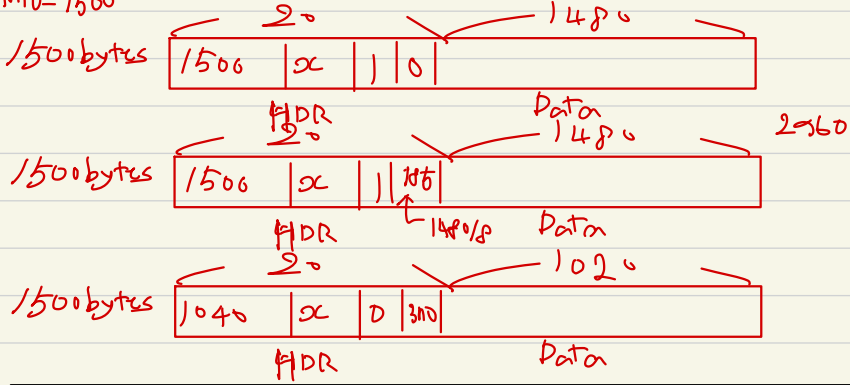 MTU=1500
20 1480
1500bytes 1500 x 1 0
HDR Data
20 1480 2960
1500bytes 1500 x 1 185
1480/8
HDR Data
20 1020
1500bytes 1040 x 0
HDR Data